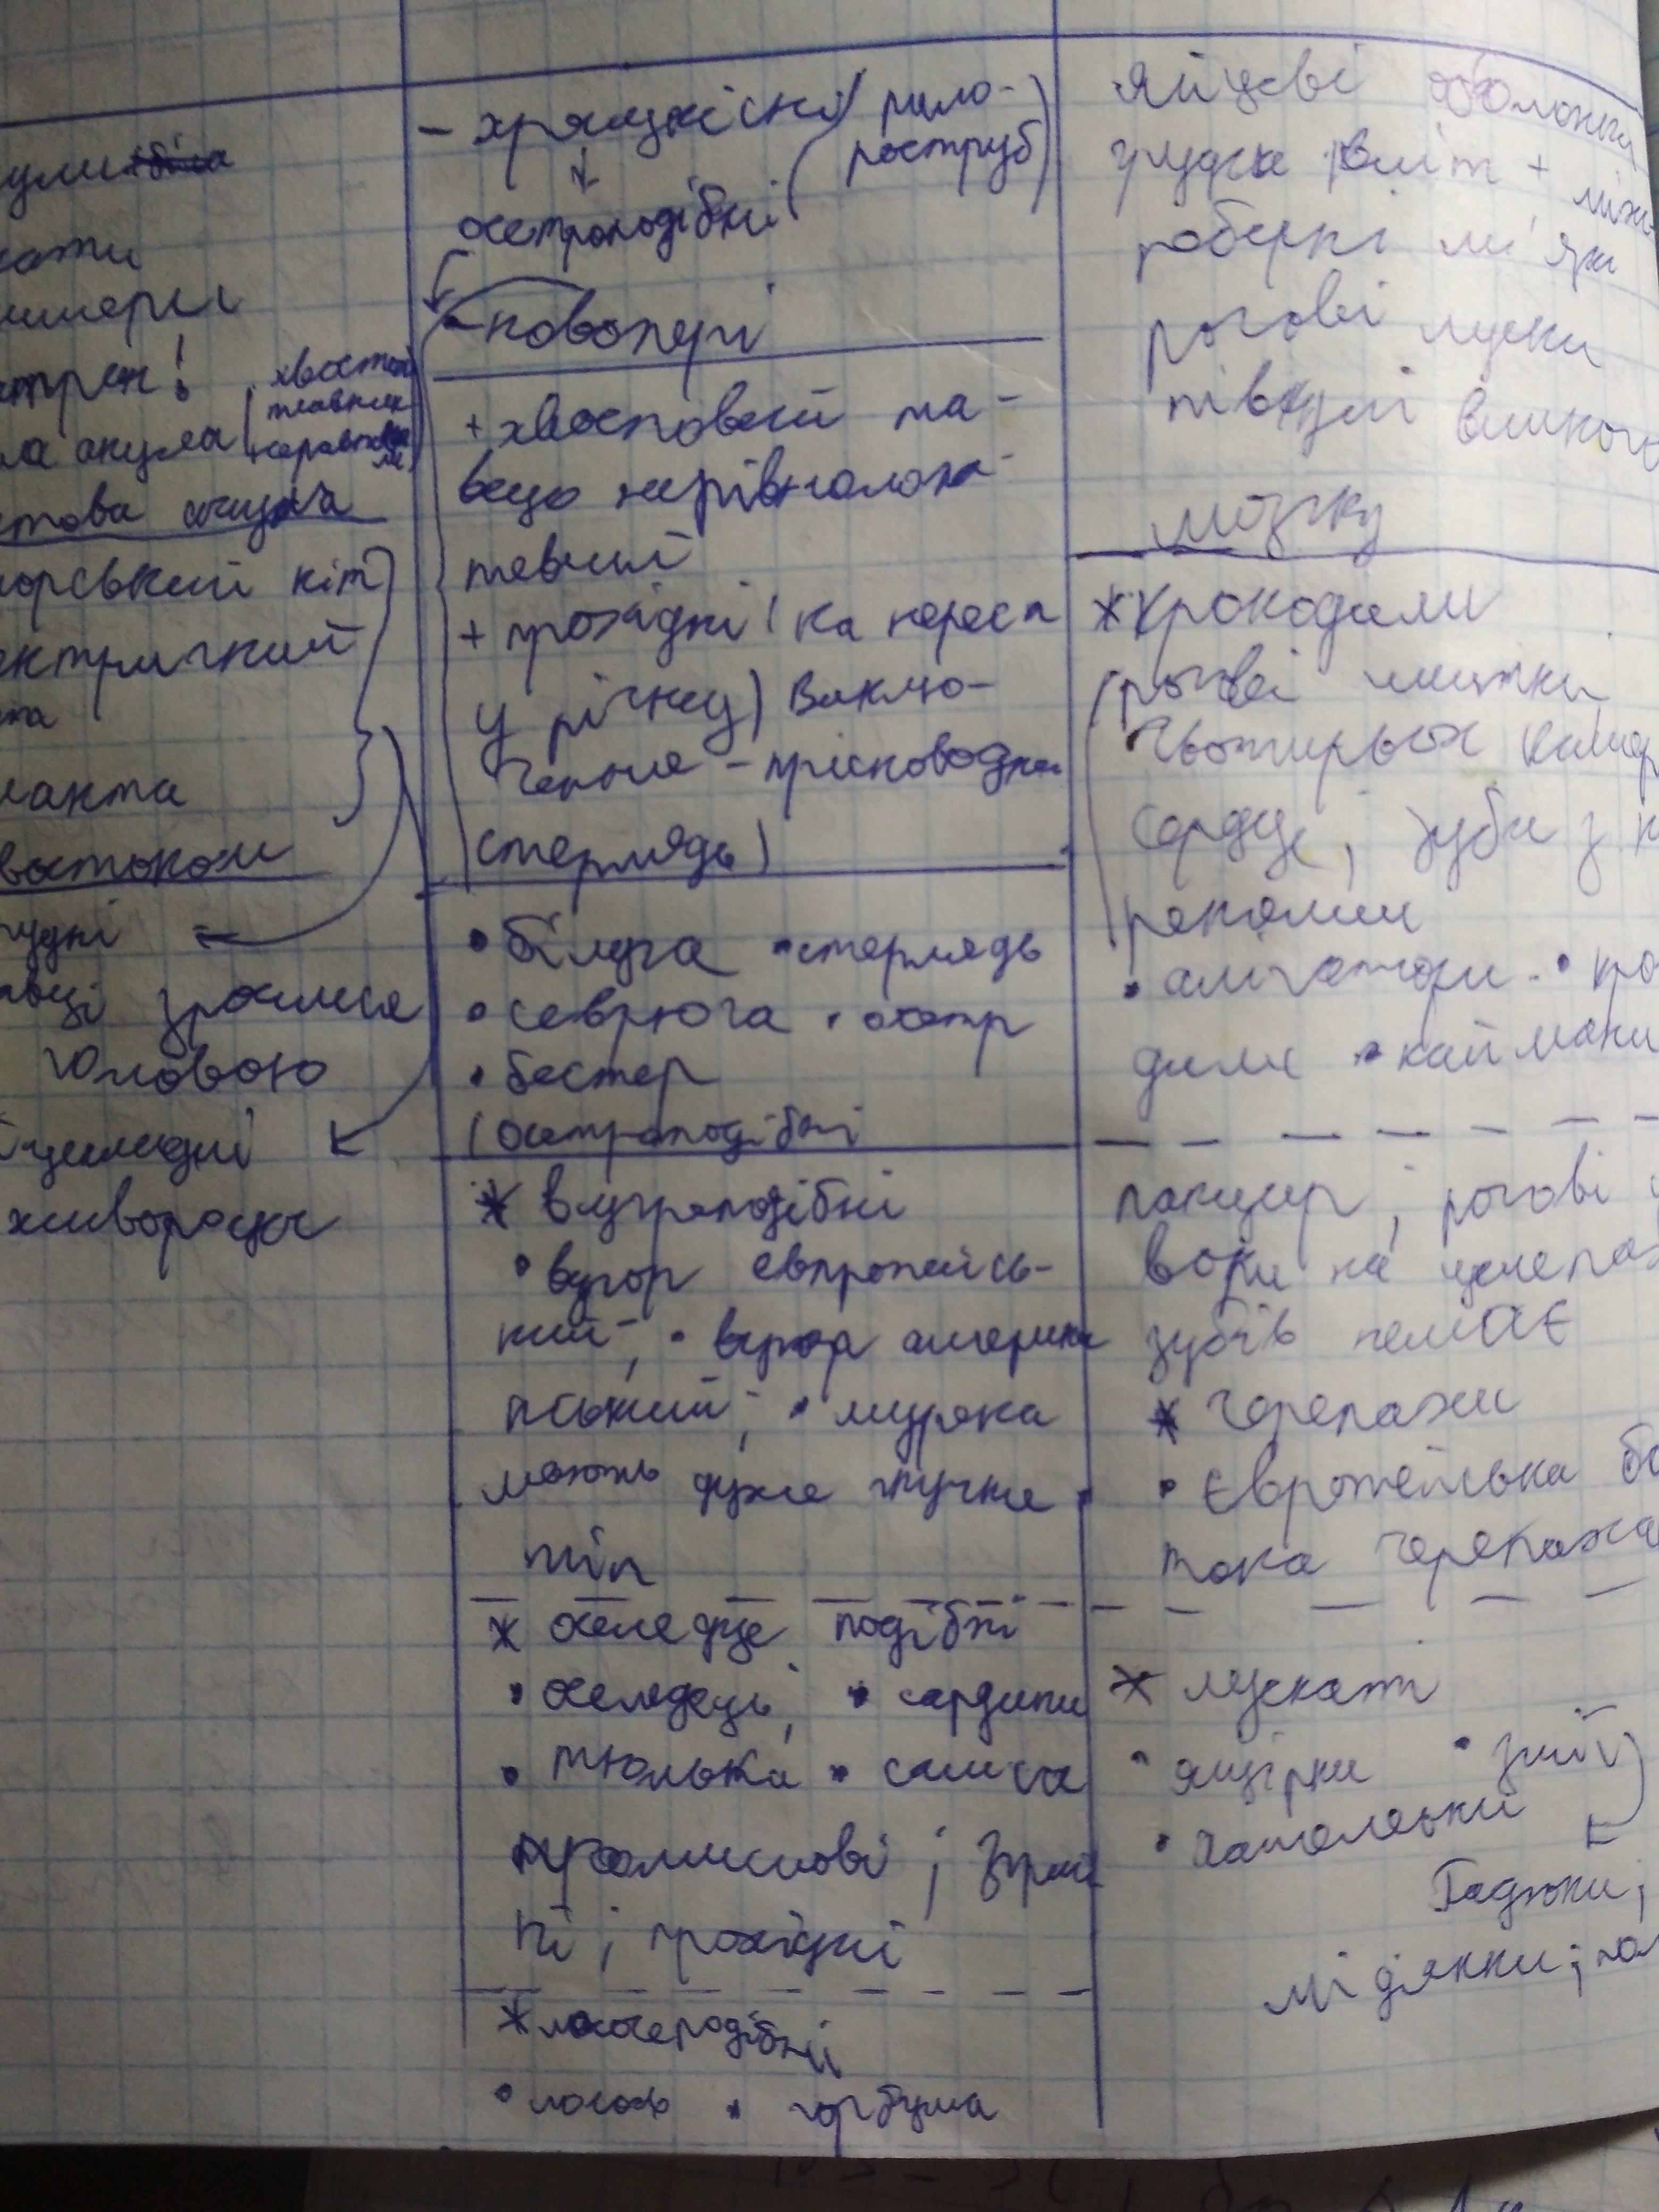 кати
хвостов
плавник
акула
акула
морський кіт
ктричний
манта
хвостокол
зрослися
головою
живородні
- хрящкісні (рило-
роструб)
осетроподібні
- новопері
+ хвостовий пла-
вець нерівнолопа-
тевий
+ прохідні (на нерест
у річку) Виклю-
чення - прісноводна
стерлядь)
• білуга • стерлядь
• севрюга • осетр
• бестер
(осетроподібні
* вугреподібні
• вугор європейсь-
кий; • вугор америка
нський; • мурена
мають дуже гнучке
тіл
* оселедцеподібні
• оселедець, • сардини
• тюлька • салака
промислові; зграй
ні; прохідні
* лососеподібні
• лосось • горбуша
яйцеві оболонки
грудна кліт + між-
реберні м'язи
рогові луски
півкулі
мозку
* крокодили
(рогові щитки
чотирьох камер
серце, зуби з
• алігатори • кро
дили • каймани
панцир, рогові
на щелепах
зубів немає
* черепахи
• європейська бо
тяна черепаха
* лускаті
• ящірки • змії
• хамелеони
Гадюки;
мідянки;